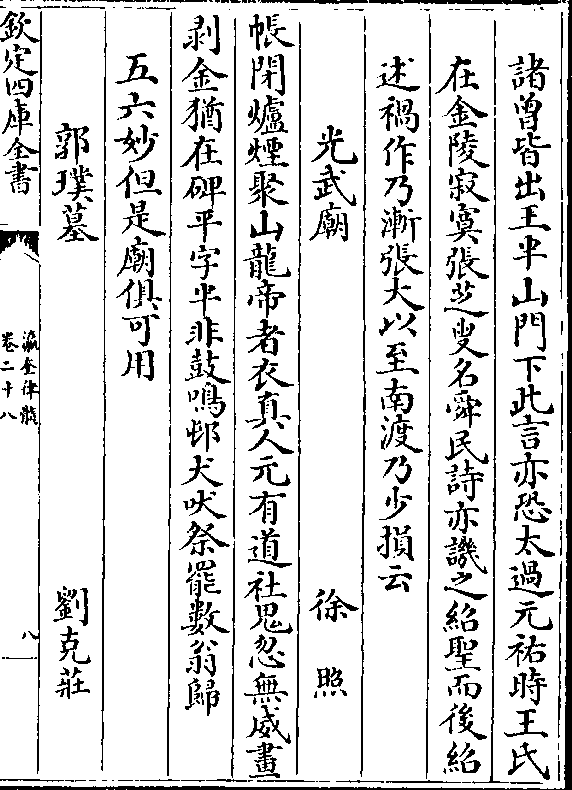 諸曾皆出王半山門下此言亦恐太過元祐時王氏
在金陵寂寞張芝叟名舜民詩亦譏之紹聖而後紹
述禍作乃漸張大以至南渡乃少損云
光武廟 徐照
帳閉爐煙聚山龍帝者衣真人元有道社鬼忽無威畫
剥金猶在碑平字半非鼓鳴邨犬吠祭罷數翁歸
五六妙但是廟俱可用
郭璞墓 劉克莊
欽定四庫全書
瀛奎律髓
卷二十八
八